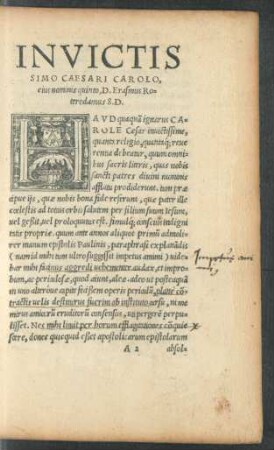 INVICTIS
SIMO CAESARI CAROLO,
eius nominis quinto, D. Erasmus Ro-
terodamus S.D.
HAVD quaquã ignarus CA
ROLE Cæsar inuictissime,
quanta religio, quantaq; reue
rentia debeatur, quum omni-
bus sacris literis, quas nobis
sancti patres diuini numinis
afflatu prodiderunt, tum præ
cipue ijs, quæ nobis bona fide referunt, quæ pater ille
cœlestis ad totius orbis salutem per filium suum Iesum,
uel gessit, uel proloquutus est. simulq; conscius indigni-
tatis propriæ. quum ante annos aliquot primũ admo-
lirer manum epistolis Paulinis, paraphrasi explanãdis
( nam id mihi tum ultro suggessit impetus animi ) uide-
bar mihi facinus aggredi uehementer audax, et improbum,
ac periculosæ, quod aiunt, aleæ: adeo ut post cœptã
in uno alteroue capite factâ operis periculũ, plane cõ-
tractis uelis destinarus fuerim ab instituto cursu, ni me
mirus amicorũ eruditorũ consensus, uti pergerẽ perpu-
lisset. Nec mihi licuit per horum efflagitationes cõquie
scere, donec quicquid esset apostolicarum epistolarum
A 2 absol-